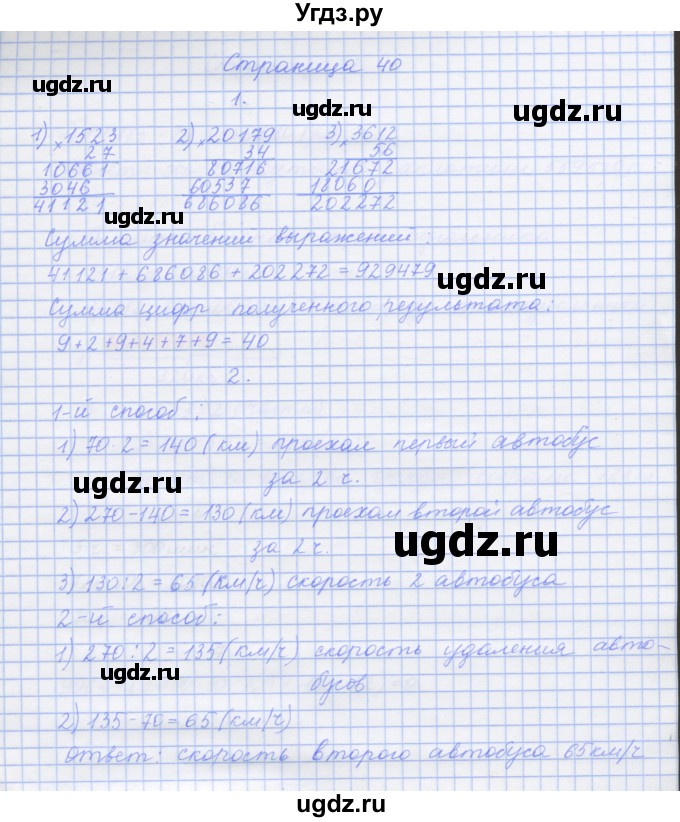 Угдз.ру
Страница 40
1.
1) × 1523 2) × 20179 3) × 3612
27 34 56
10661 80716 21672
3046 60537 18060
41121 686086 202272
ugdz.ru
ugdz.ru
ugdz.ru
Сумма значений выражений:
41121 + 686086 + 202272 = 929479
ugdz.ru
Сумма цифр полученного результата:
9+2+9+4+7+9 = 40
2.
1-й способ:
1) 70 · 2 = 140 (км) проехал первый автобус
за 2 ч.
ugdz.ru
2) 270 - 140 = 130 (км) проехал второй автобус
за 2 ч.
ugdz.ru
3) 130 : 2 = 65 (км/ч) скорость 2 автобуса
2-й способ:
1) 270 : 2 = 135 (км/ч) скорость удаления авто-
бусов
ugdz.ru
2) 135 - 70 = 65 (км/ч)
ответ: скорость второго автобуса 65 км/ч
ugdz.ru